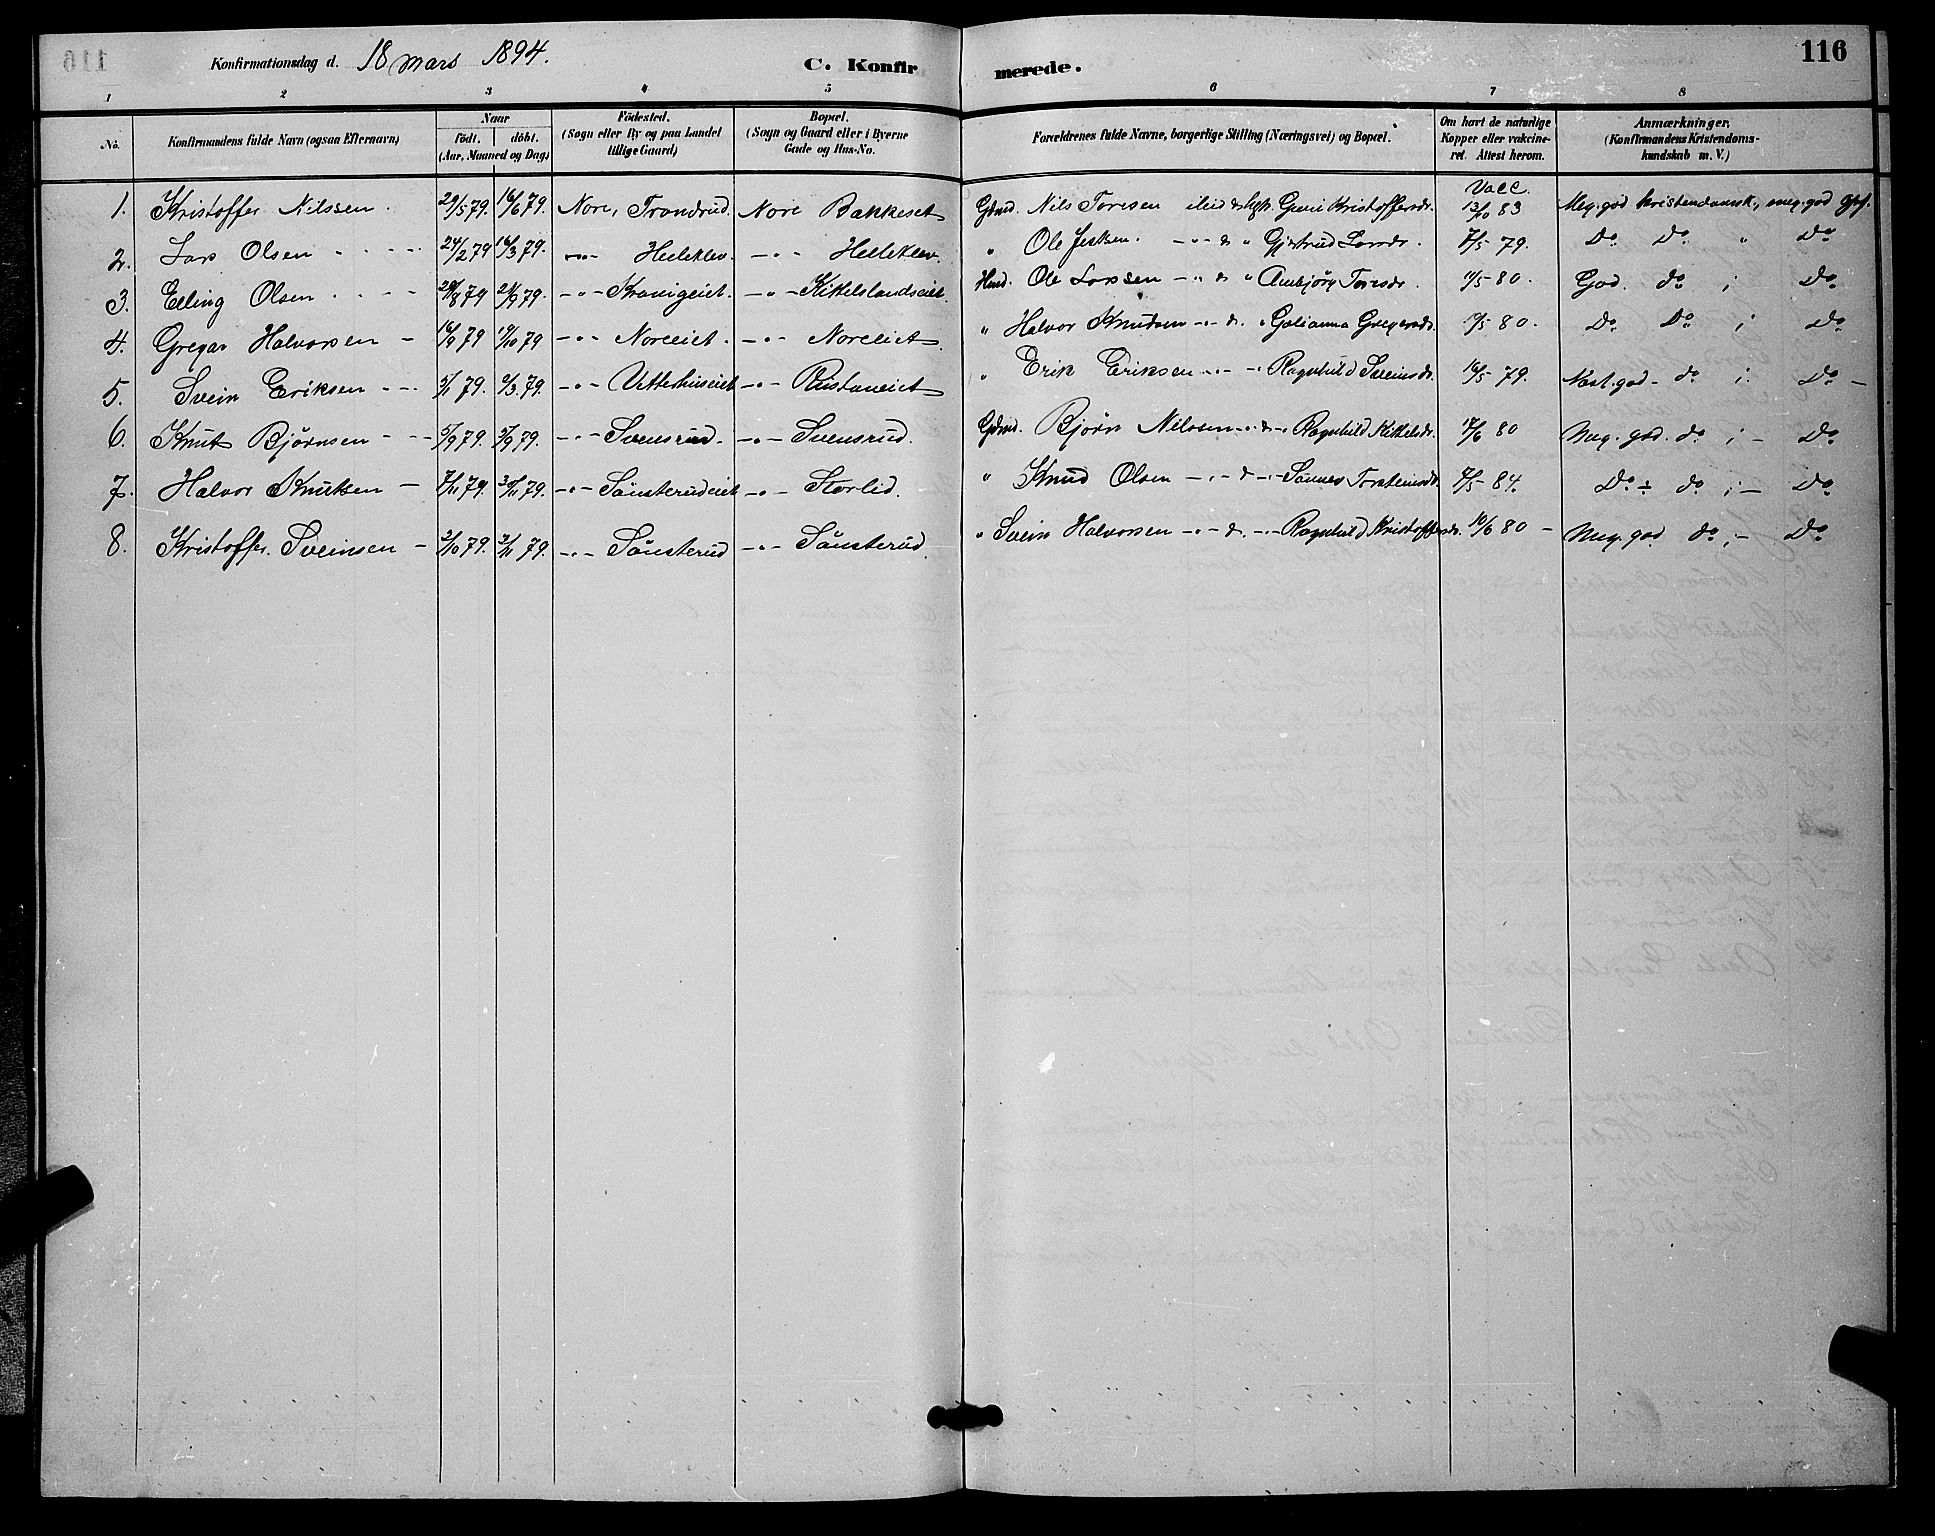 Konfirmationsdag d. 18 mars 1894. C. Konfirmerede. 116
1 2 3 4 5 6 7 8
No. Konfirmandens fulde Navn (ogsaa Efternavn) Naar födt. döbt. (Aar, Maaned og Dag) Födested. (Sogn eller By og paa Landet tillige Gaard) Bopæl. (Sogn og Gaard eller i Byerne Gade og Hus-No. Forældrenes fulde Navne, borgerlige Stilling (Næringsvei) og Bopæl. Om havt de naturlige Kopper eller vakcineret. Attest herom. Anmærkninger, (Konfirmandens Kristendomskundskab m. V.)
1. Kristoffer Nilssen. 29/5 79. 16/6 79. Nore, Trondrud. Nore Bakkeset Gdmd. Nils Toresen & Guri Kristoffersdr. Vacc. 13/10 83 Meg. god kristendomsk., meg. god
2. Lars Olsen 24/2 79 16/3 79. -"- Helleklev. -"- Helleklev. " Ole -"- & " Gjertrud Larsdr. 7/5 79. Do Do " Do
3. Elling Olsen 29/8 79 21/9 79. -"- Kravigeiet. -"- Kikelslandseiet Hmd. Ole Larssen -"- & " Anbjørg Toresdr. 11/5 80. God. do ; Do
4. Gregar Halvorsen 16/9 79 19/10 79 -"- Noreeiet. -"- Noreeiet " Halvor Knudsen -"- & " Golianna Gregarsdr. 19/5 80. Do Do ; Do
5. Svein Eriksen 5/1 79. 9/3 79. -"- Vettehuseiet -"- Rustaneiet " Erik Eriksen -"- -"- Ragnhild Sveinsdr. 16/5 79. Nost. god - do ; Do -
6. Knut Bjørnsen 5/9 79. 5/9 79. -"- Svensrud. -"- Svensrud. Gdmd. Bjørn Nilssen -"- & -"- Ragnhild Kikelsdr. 17/6 80 Meg. god. do ; - Do
7. Halvor Knutsen 7/11 79. 30/11 79. -"- Sönsterudeiet -"- Storlid. " Knud Olsen -"- & -"- Sünnev Torsteinsdr. 9/5 84. Do - do ; - Do
8. Kristoffer Sveinsen 2/10 79. 2/11 79. -"- Sönsterud -"- Sönsterud. " Svein Halvorsen -"- & -"- Ragnhild Kristoffersdr. 10/6 80 - Meg. god do ; - Do